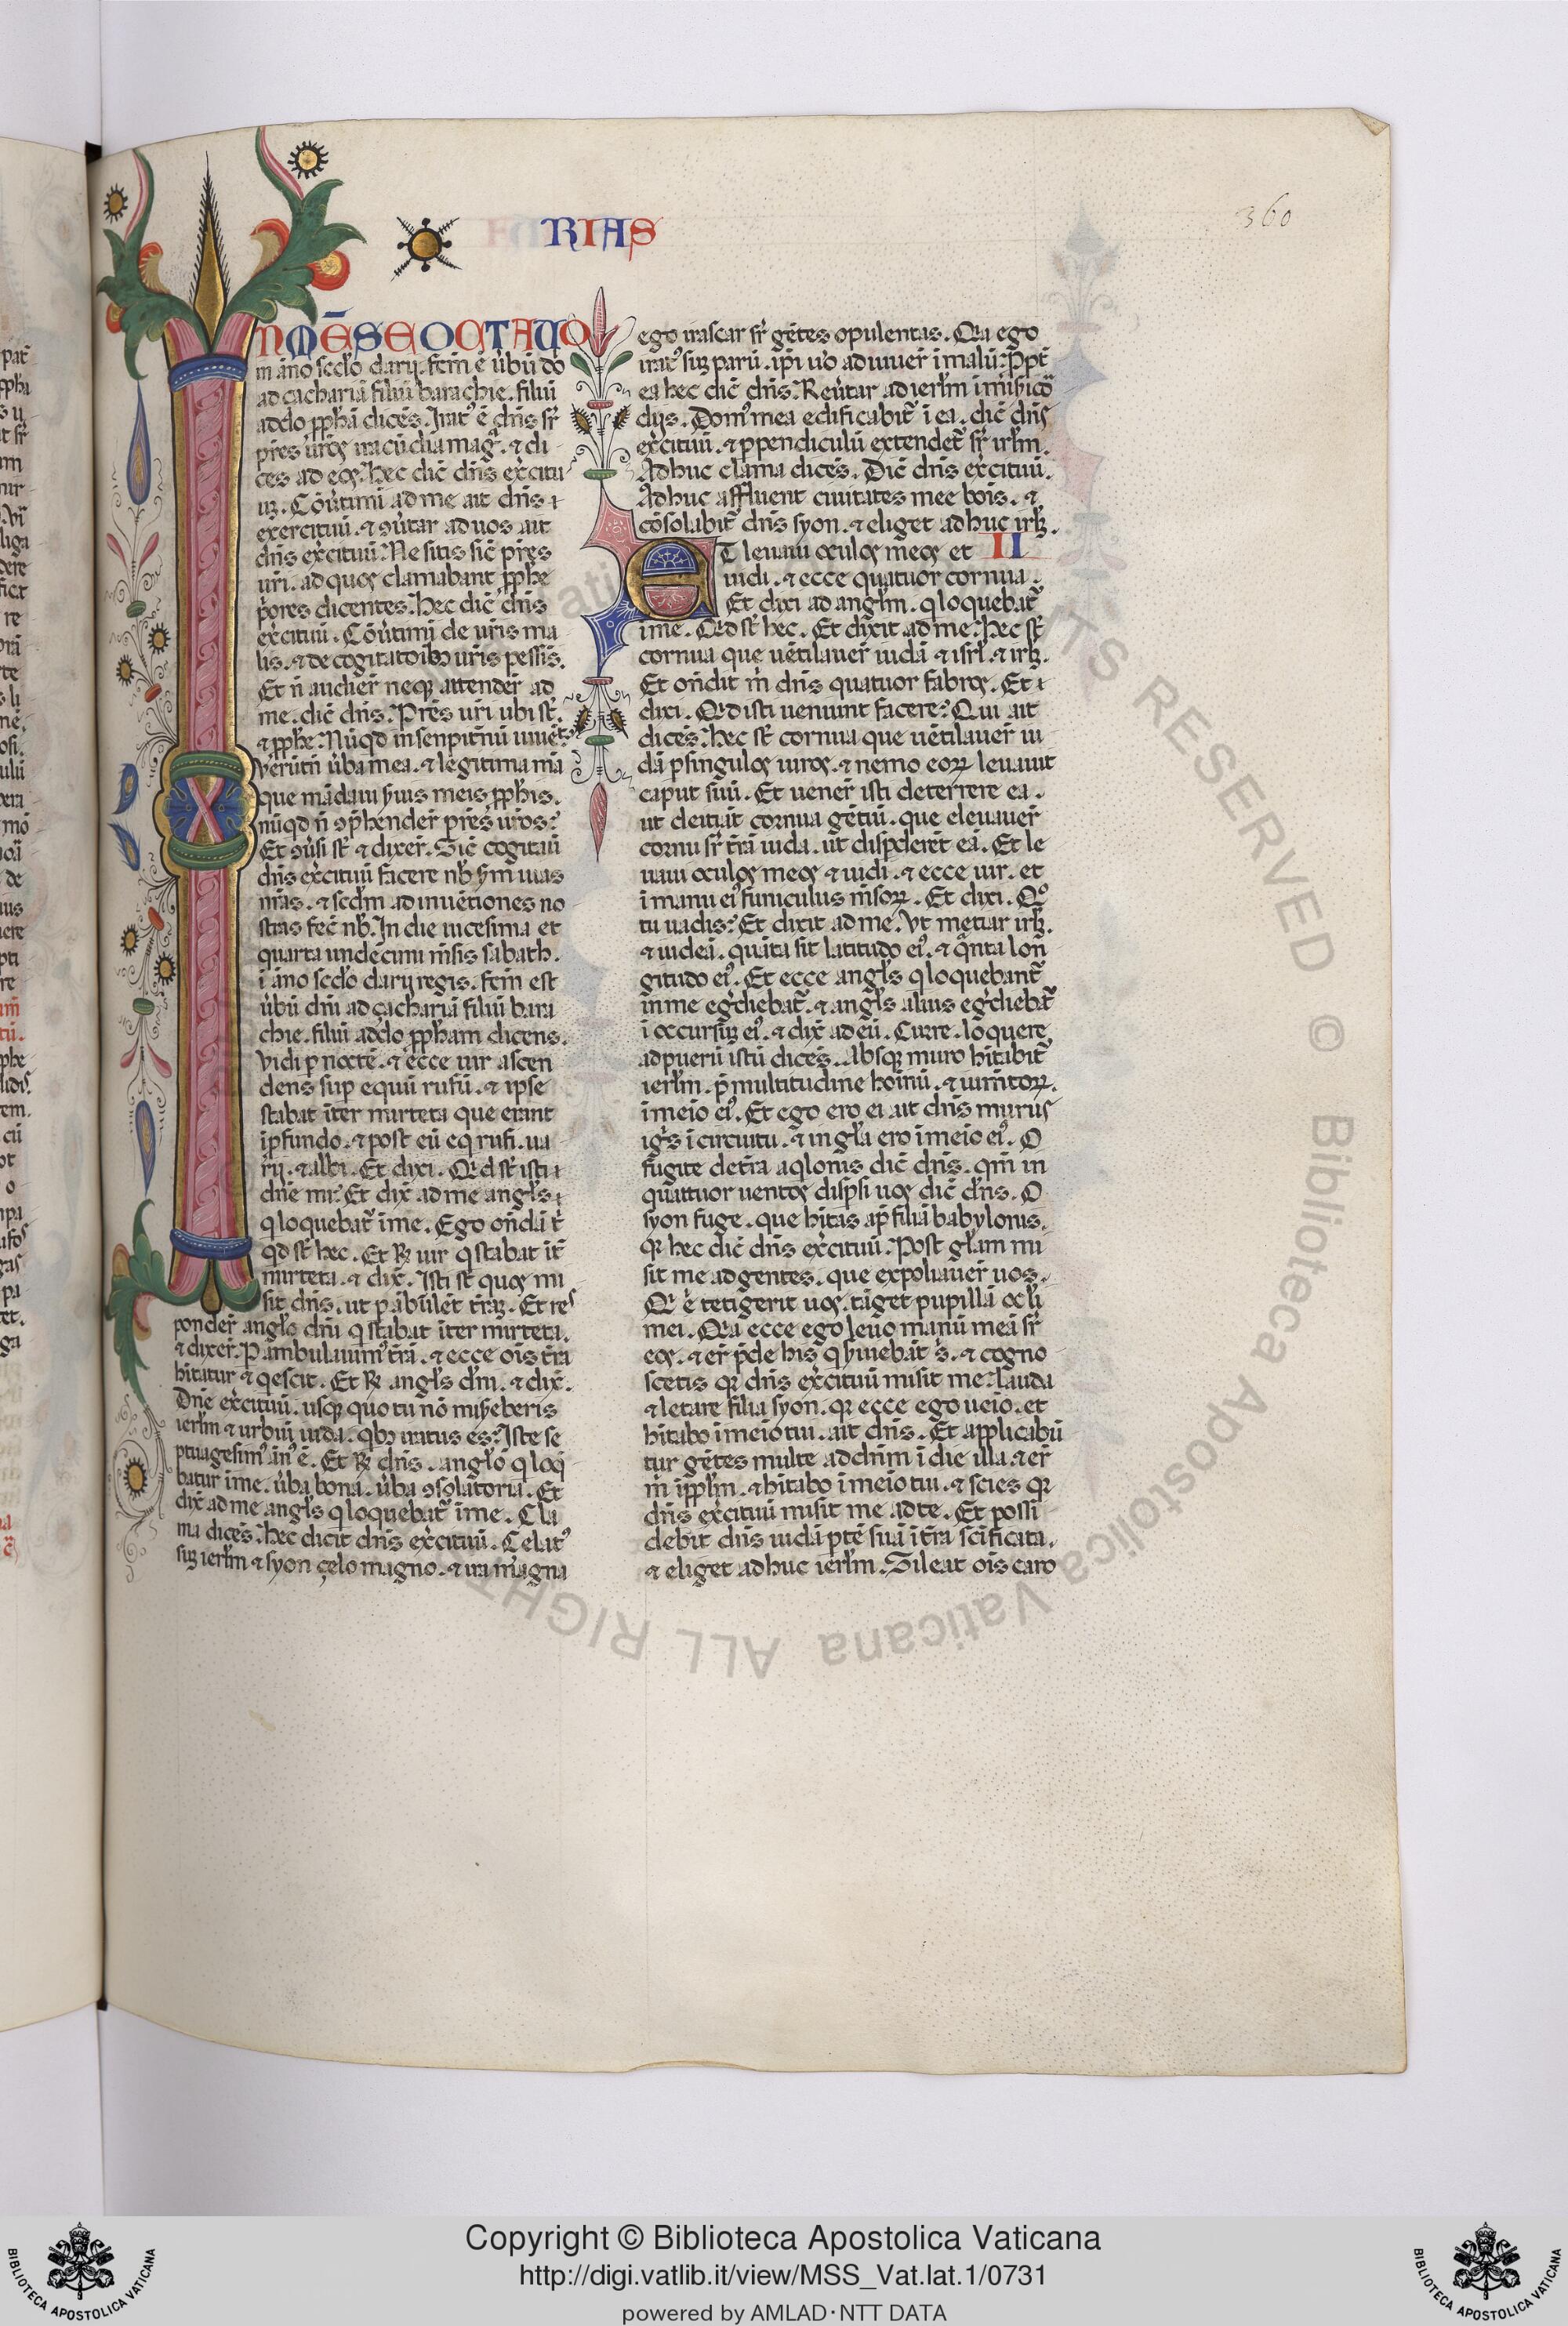 RIAS
360
N MĒSE OCTAUO
in āno scđo darij. fcm̄ ē ūbū dn̄i
ad çachariā filiū barachie. filiū
addo pphā dicēs. Irat᾽ ē dn̄s sr̄
pr̄es ūr̄os iracūdia mag̃. ⁊ di
ces ad eos. Hec dic̄ dn̄s ex̄citu
uȝ. Cōūtimī ad me ait dn̄s
exercituū. ⁊ ꝯūtar ad uos ait
dn̄s ex̄cituū. Ne sitis sic̄ pr̄es
ur̄i. ad quos clamabant pphe
p̄ores dicentes. Hec dic̄ dn̄s
ex̄cituū. Cōūtimī de ur̄is ma
lis. ⁊ de cogitatōibȝ ur̄is pessīs.
Et n̄ audier̄ neqȝ attender̄ ad
me. dic̄ dn̄s. Pr̄es ur̄i ubi st̄.
⁊ pphe. Nūqd in senpit̄nū uiuēt᾽
Verūtn̄ ūba mea. ⁊ legitima m̄a
que mādaui s̄uis meis pphis.
nūqd n̄ ꝯp̄hender̄ pr̄es ur̄os?
Et ꝯūsi st̄ ⁊ dixer̄. Sic̄ cogitauī
dn̄s ex̄cituū facere nb̄ s̄m uias
nr̄as. ⁊ scđm ad inuētiones no
stras fec̄ nb̄. In die uicesima et
quarta undecimi m̄sis sabath.
ī āno scđo darij regis. fcm̄ est
ūbū dn̄i ad çachariā filiū bara
chie. filiū addo ppham dicens.
Vidi p noctē. ⁊ ecce uir ascen
dens sup equū rufū. ⁊ ipse
stabat īter mirteta que erant
ī pfundo. ⁊ post eū eq rufi. ua
rij. ⁊ albi. Et dixi. Qd st̄ isti
dn̄e mi? Et dix̄ ad me angls
q loquebat᾽ ī me. Ego ōndā t̄
qd st̄ hec. Et R̄ uir q stabat īt̄
mirteta. ⁊ dix̄. Isti st̄ quos mi
sit dn̄s. ut p ābulēt t̄raȝ. Et res
ponder̄ anglo dn̄i q stabat īter mirteta.
⁊ dixer̄. Pambulauim᾽ t̄rā. ⁊ ecce oīs t̄ra
hitatur ⁊ qescit. Et R̄ angls dn̄i. ⁊ dix̄.
Dn̄e ex̄cituū. usqȝ quo tu nō mis̄eberis
ierlm ⁊ urbiū iuda. qbȝ iratus es? Iste se
ptuagesim᾽ ān᾽ ē. Et R̄ dn̄s. anglo q loq̄
batur ī me. ūba bona. ūba ꝯsolatoria. Et
dix̄ ad me angls q loquebat᾽ ī me. Cla
ma dicēs. Hec dicit dn̄s ex̄cituū. Celat᾽
suȝ ierlm ⁊ syon çelo magno. ⁊ ira magna
ego irascar sr̄ gētes opulentas. Qa ego
irat᾽ suȝ parū. ip̄i uo adiuuer̄ ī malū. Ppt̄
ea hec dic̄ dn̄s. Reūtar ad ierlm ī mīsicō
dijs. Dom᾽ mea edificabit᾽ ī ea. dic̄ dn̄s
ex̄cituū. ⁊ ppendiculū extendet᾽ sr̄ irlm.
Adhuc clama dicēs. Dic̄ dn̄s ex̄cituū.
Adhuc affluent ciuitates mee bois. ⁊
cōsolabit᾽ dn̄s syon. ⁊ eliget adhuc irlȝ.
ET leuaui oculos meos et II
uidi. ⁊ ecce quatuor cornua.
Et dixi ad anglm. q loquebat᾽
ī me. Qd st̄ hec. Et dixit ad me. Hec st̄
cornua que uētilauer̄ iudā ⁊ isrl. ⁊ irlȝ.
Et ōndit m̄ dn̄s quatuor fabros. Et
dixi. Qd isti ueniunt facere? Qui ait
dicēs. Hec st̄ cornua que uētilauer̄ iu
dā p singulos uiros. ⁊ nemo eoꝝ leuauit
caput suū. Et uener̄ isti deterrere ea.
ut deiciāt cornua gētiū. que eleuauer̄
cornu sr̄ t̄rā iuda. ut dispderēt eā. Et le
uaui oculos meos ⁊ uidi. ⁊ ecce uir. et
ī manu ei᾽ funiculus m̄soꝝ. Et dixi. Qo
tu uadis? Et dixit ad me. Vt metiar irlȝ.
⁊ iudeā. quāta sit latitudo ei᾽. ⁊ q̄nta lon
gitudo ei᾽. Et ecce angls q loquebant᾽
in me eg̃diebat᾽. ⁊ angls alius eg̃diebat᾽
ī occursuȝ ei᾽. ⁊ dix̄ ad eū. Curre. loquere
ad puerū istū dicēs. Absqȝ muro hitabit᾽
ierlm. p̄ multitudine hoīnū. ⁊ iumtoꝝ.
ī meio ei᾽. Et ego ero ei ait dn̄s murus
igis ī circuitu. ⁊ in gla ero ī meio ei᾽. O
fugite de t̄ra aqlonis dic̄ dn̄s. qm̄ in
quattuor uentos dispsi uos dic̄ dn̄s. O
syon fuge. que hitas ap̄ filiā babylonis.
qꝛ hec dic̄ dn̄s ex̄cituū. Post glam mi
sit me ad gentes. que expoliauer̄ uos.
Q ē tetigerit uos. tāget pupillā ocli
mei. Qa ecce ego leuo manū meā sr̄
eos. ⁊ er̄ p̄de his q s̄uiebāt s̄. ⁊ cogno
scetis qꝛ dn̄s ex̄cituū misit me. Lauda
⁊ letare filia syon. qꝛ ecce ego ueīo. et
hitabo ī meio tui. ait dn̄s. Et applicabū
tur gētes multe ad dnm̄ ī die illa. ⁊ er̄
m̄ ī pplm. ⁊ hitabo ī meio tui. ⁊ scies qꝛ
dn̄s ex̄cituū misit me ad te. Et possi
debit dn̄s iudā ptē suā ī t̄ra scīficata.
⁊ eliget adhuc ierlm. Sileat oīs caro
Copyright © Biblioteca Apostolica Vaticana
http://digi.vatlib.it/view/MSS_Vat.lat.1/0731
powered by AMLAD·NTT DATA
BIBLIOTECA APOSTOLICA VATICANA
BIBLIOTECA APOSTOLICA VATICANA
ALL RIGHTS RESERVED © Biblioteca Apostolica Vaticana